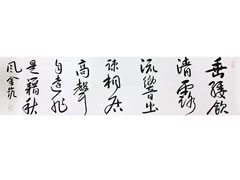 垂緌飲
清露
流響出
疎桐居
高聲
自遠非
是籍秋
風